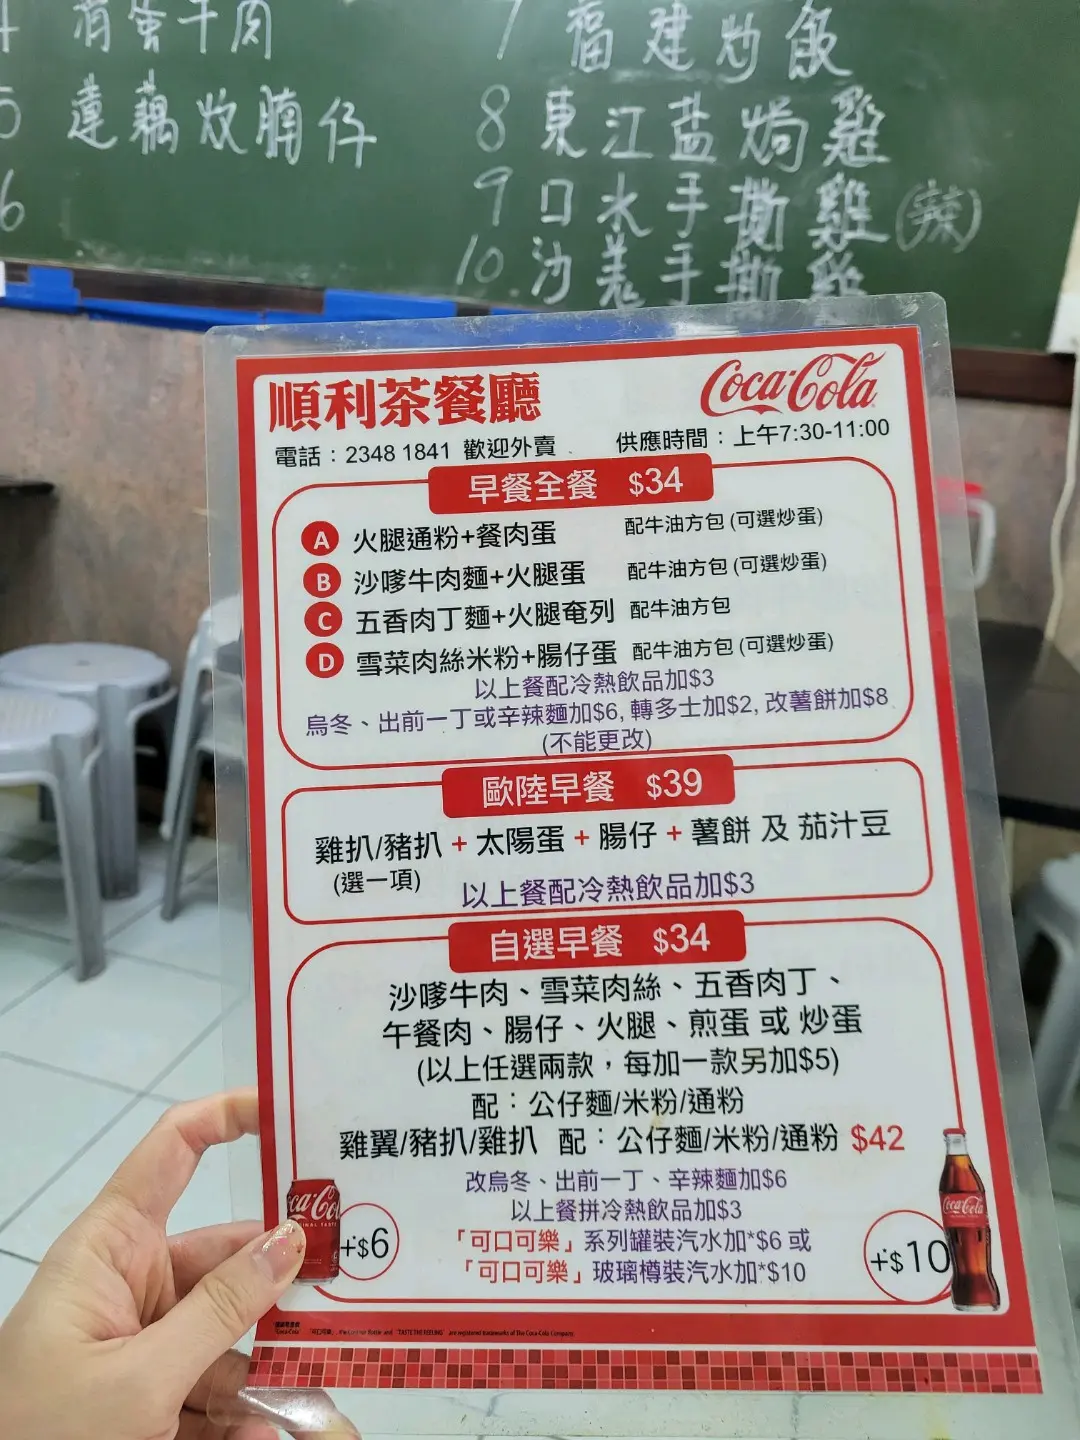 4 肖蛋牛肉
5 蓮藕炆腩仔
6
7 福建炒飯
8 東江盐焗雞
9 口水手撕雞(辣)
10. 沙羌手撕雞
順利茶餐廳
Coca-Cola
電話：2348 1841 歡迎外賣
供應時間：上午7:30-11:00
早餐全餐 $34
A 火腿通粉+餐肉蛋 配牛油方包 (可選炒蛋)
B 沙嗲牛肉麵+火腿蛋 配牛油方包 (可選炒蛋)
C 五香肉丁麵+火腿奄列 配牛油方包
D 雪菜肉絲米粉+腸仔蛋 配牛油方包 (可選炒蛋)
以上餐配冷熱飲品加$3
烏冬、出前一丁或辛辣麵加$6, 轉多士加$2, 改薯餅加$8
(不能更改)
歐陸早餐 $39
雞扒/豬扒 + 太陽蛋 + 腸仔 + 薯餅 及 茄汁豆
(選一項)
以上餐配冷熱飲品加$3
自選早餐 $34
沙嗲牛肉、雪菜肉絲、五香肉丁、
午餐肉、腸仔、火腿、煎蛋 或 炒蛋
(以上任選兩款，每加一款另加$5)
配：公仔麵/米粉/通粉
雞翼/豬扒/雞扒 配：公仔麵/米粉/通粉 $42
改烏冬、出前一丁、辛辣麵加$6
以上餐拼冷熱飲品加$3
「可口可樂」系列罐裝汽水加*$6 或
「可口可樂」玻璃樽裝汽水加*$10
+$6
+$10
Coca-Cola
"TASTE THE FEELING" are registered trademarks of The Coca-Cola Company